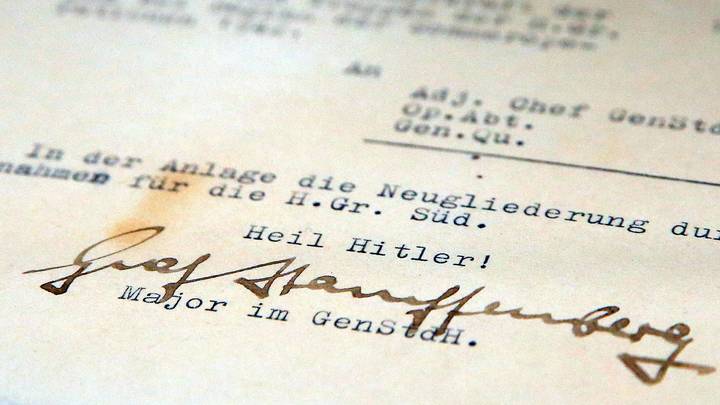 An
Adj. Chef GenStd
Op.Abt.
Gen.Qu.
In der Anlage die Neugliederung du
nahmen für die H.Gr. Süd.
Heil Hitler!
Graf Stauffenberg
Major im GenStdH.